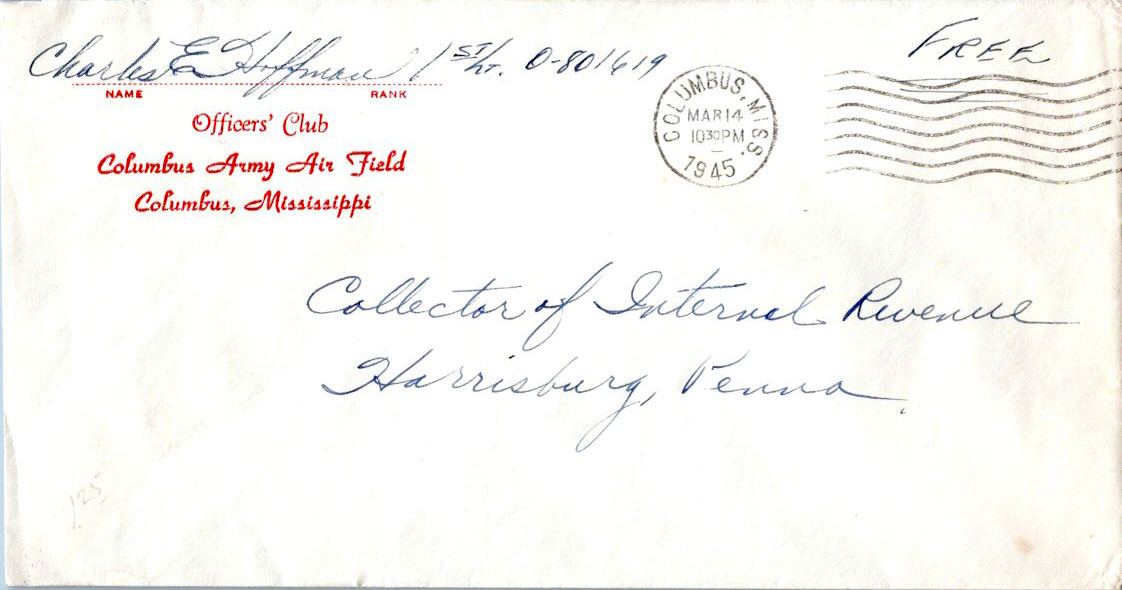 Charles E Hoffman 1ST/LT. O-801619
NAME RANK
Officers' Club
Columbus Army Air Field
Columbus, Mississippi
COLUMBUS, MISS.
MAR 14
1030 PM
1945
FREE
Collector of Internal Revenue
Harrisburg, Penna.
125